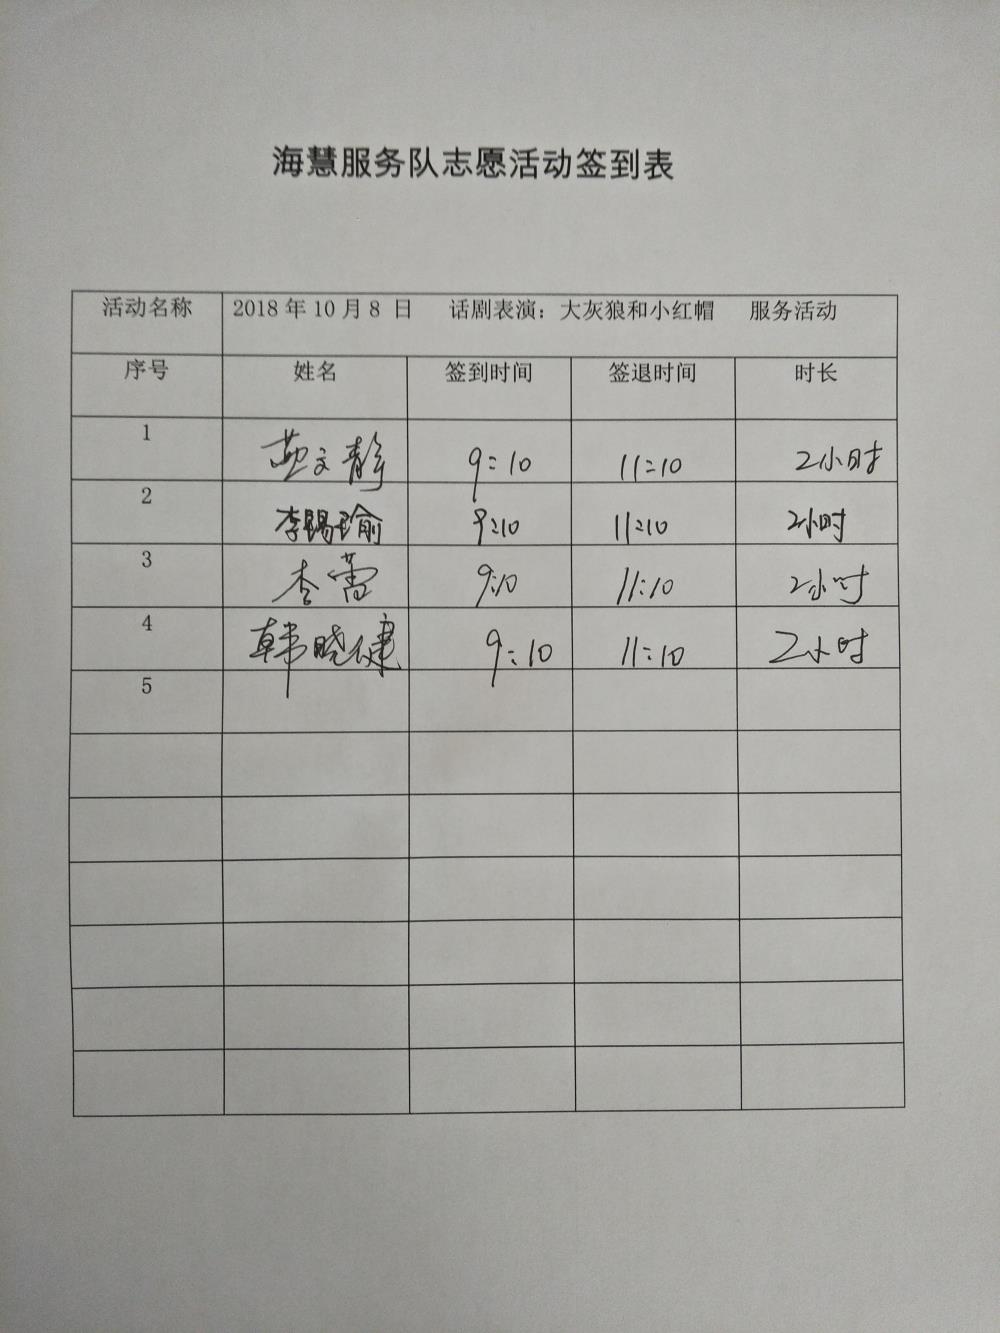 海慧服务队志愿活动签到表
活动名称 2018 年 10 月 8 日 话剧表演：大灰狼和小红帽 服务活动
序号 姓名 签到时间 签退时间 时长
1 文静 9:10 11:10 2小时
2 李锡瑜 9:10 11:10 2小时
3 李蕾 9:10 11:10 2小时
4 韩晓健 9:10 11:10 2小时
5